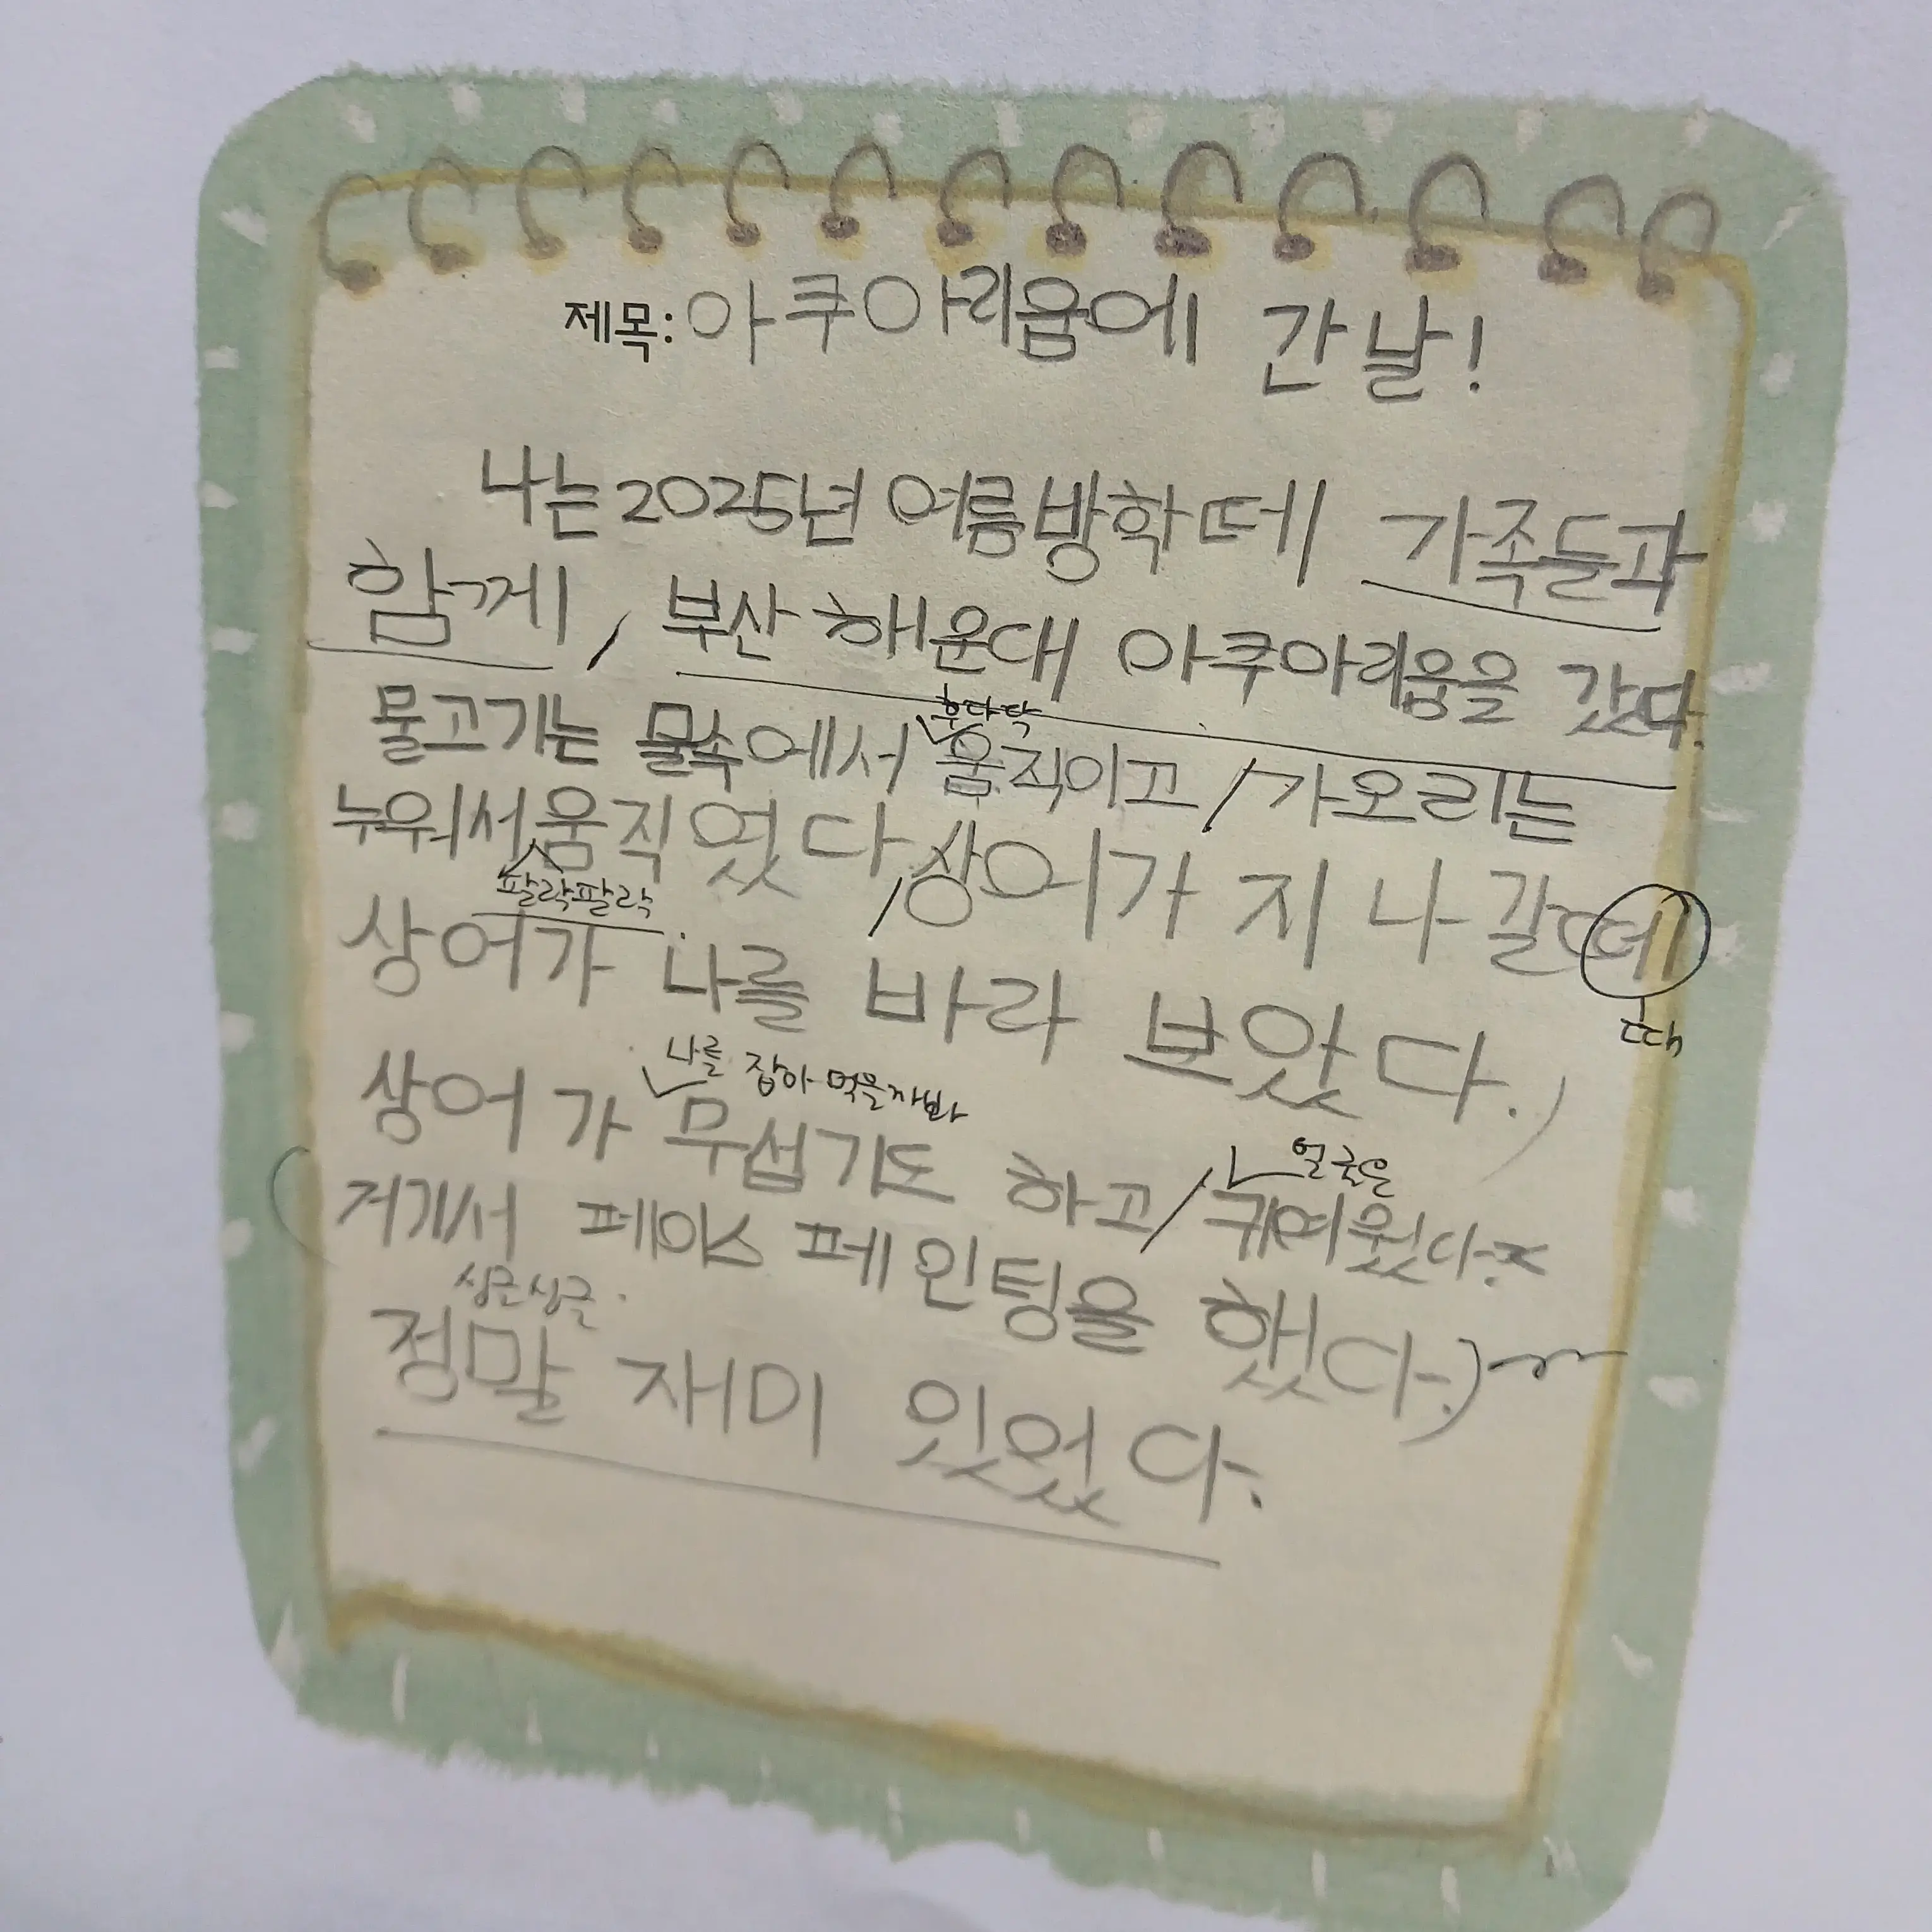 제목: 아쿠아리움에 간 날!
나는 2025년 여름방학 떼 가족들과
함께 / 부산 해운대 아쿠아리움을 갔다.
후다닥
물고기는 물속에서 움직이고 / 가오리는
누워서 움직였다 / 상어가 지나갈 떼
팔락팔락
상어가 나를 바라 보았다.
때
나를 잡아 먹을까봐
상어가 무섭기도 하고 / 귀여웠다.
얼굴은
거기서 페이스 페인팅을 했다.
싱글싱글
정말 재미 있었다.